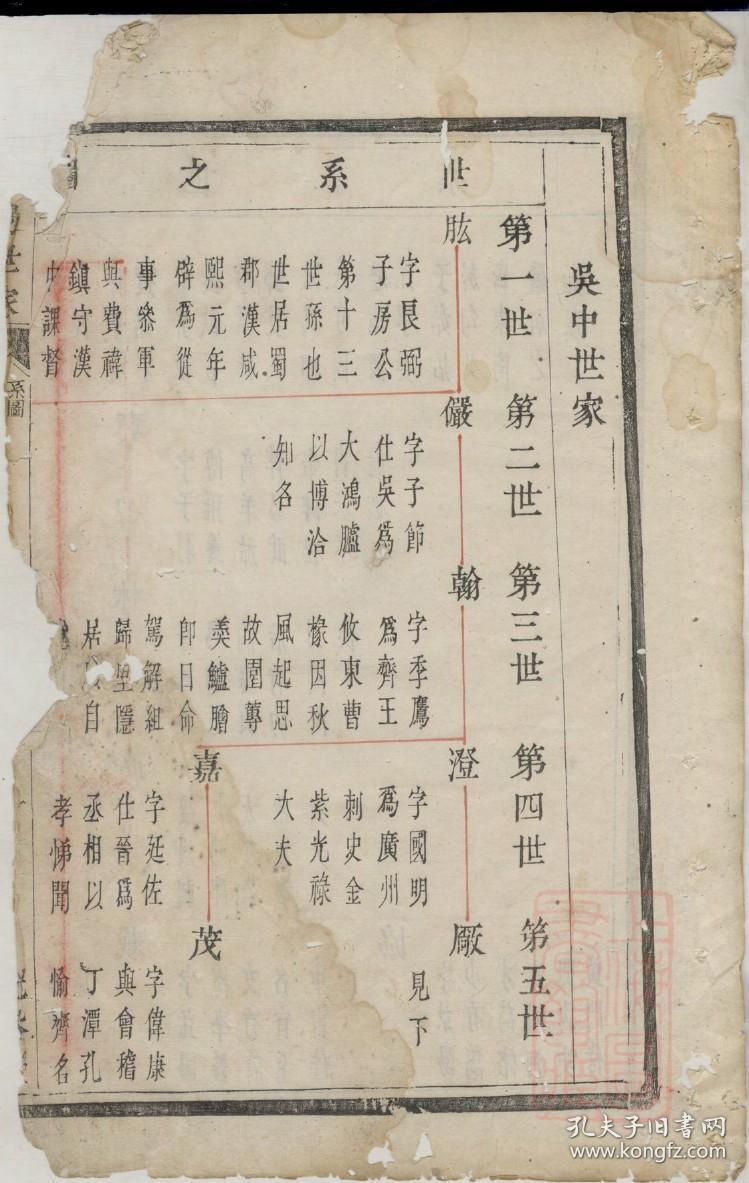 吳中世家
世系之圖
第一世
第二世
第三世
第四世
第五世
肱
字長弼
子房公
第十三
世孫也
世居蜀
郡漢咸
熙元年
辟為從
事叅軍
與費禕
鎮守漢
課督
儼
字子節
仕吳爲
大鴻臚
以博洽
知名
翰
字季鷹
爲齊王
攸東曹
椽因秋
風起思
故園蓴
羮鱸膾
即日命
駕解組
歸里隱
居以自
澄
字國明
爲廣州
刺史金
紫光祿
大夫
嘉
字延佐
仕晉爲
丞相以
孝悌聞
厰
見下
茂
字偉康
與會稽
丁潭孔
愉齊名
世家
系圖
孔夫子旧书网
www.kongfz.com